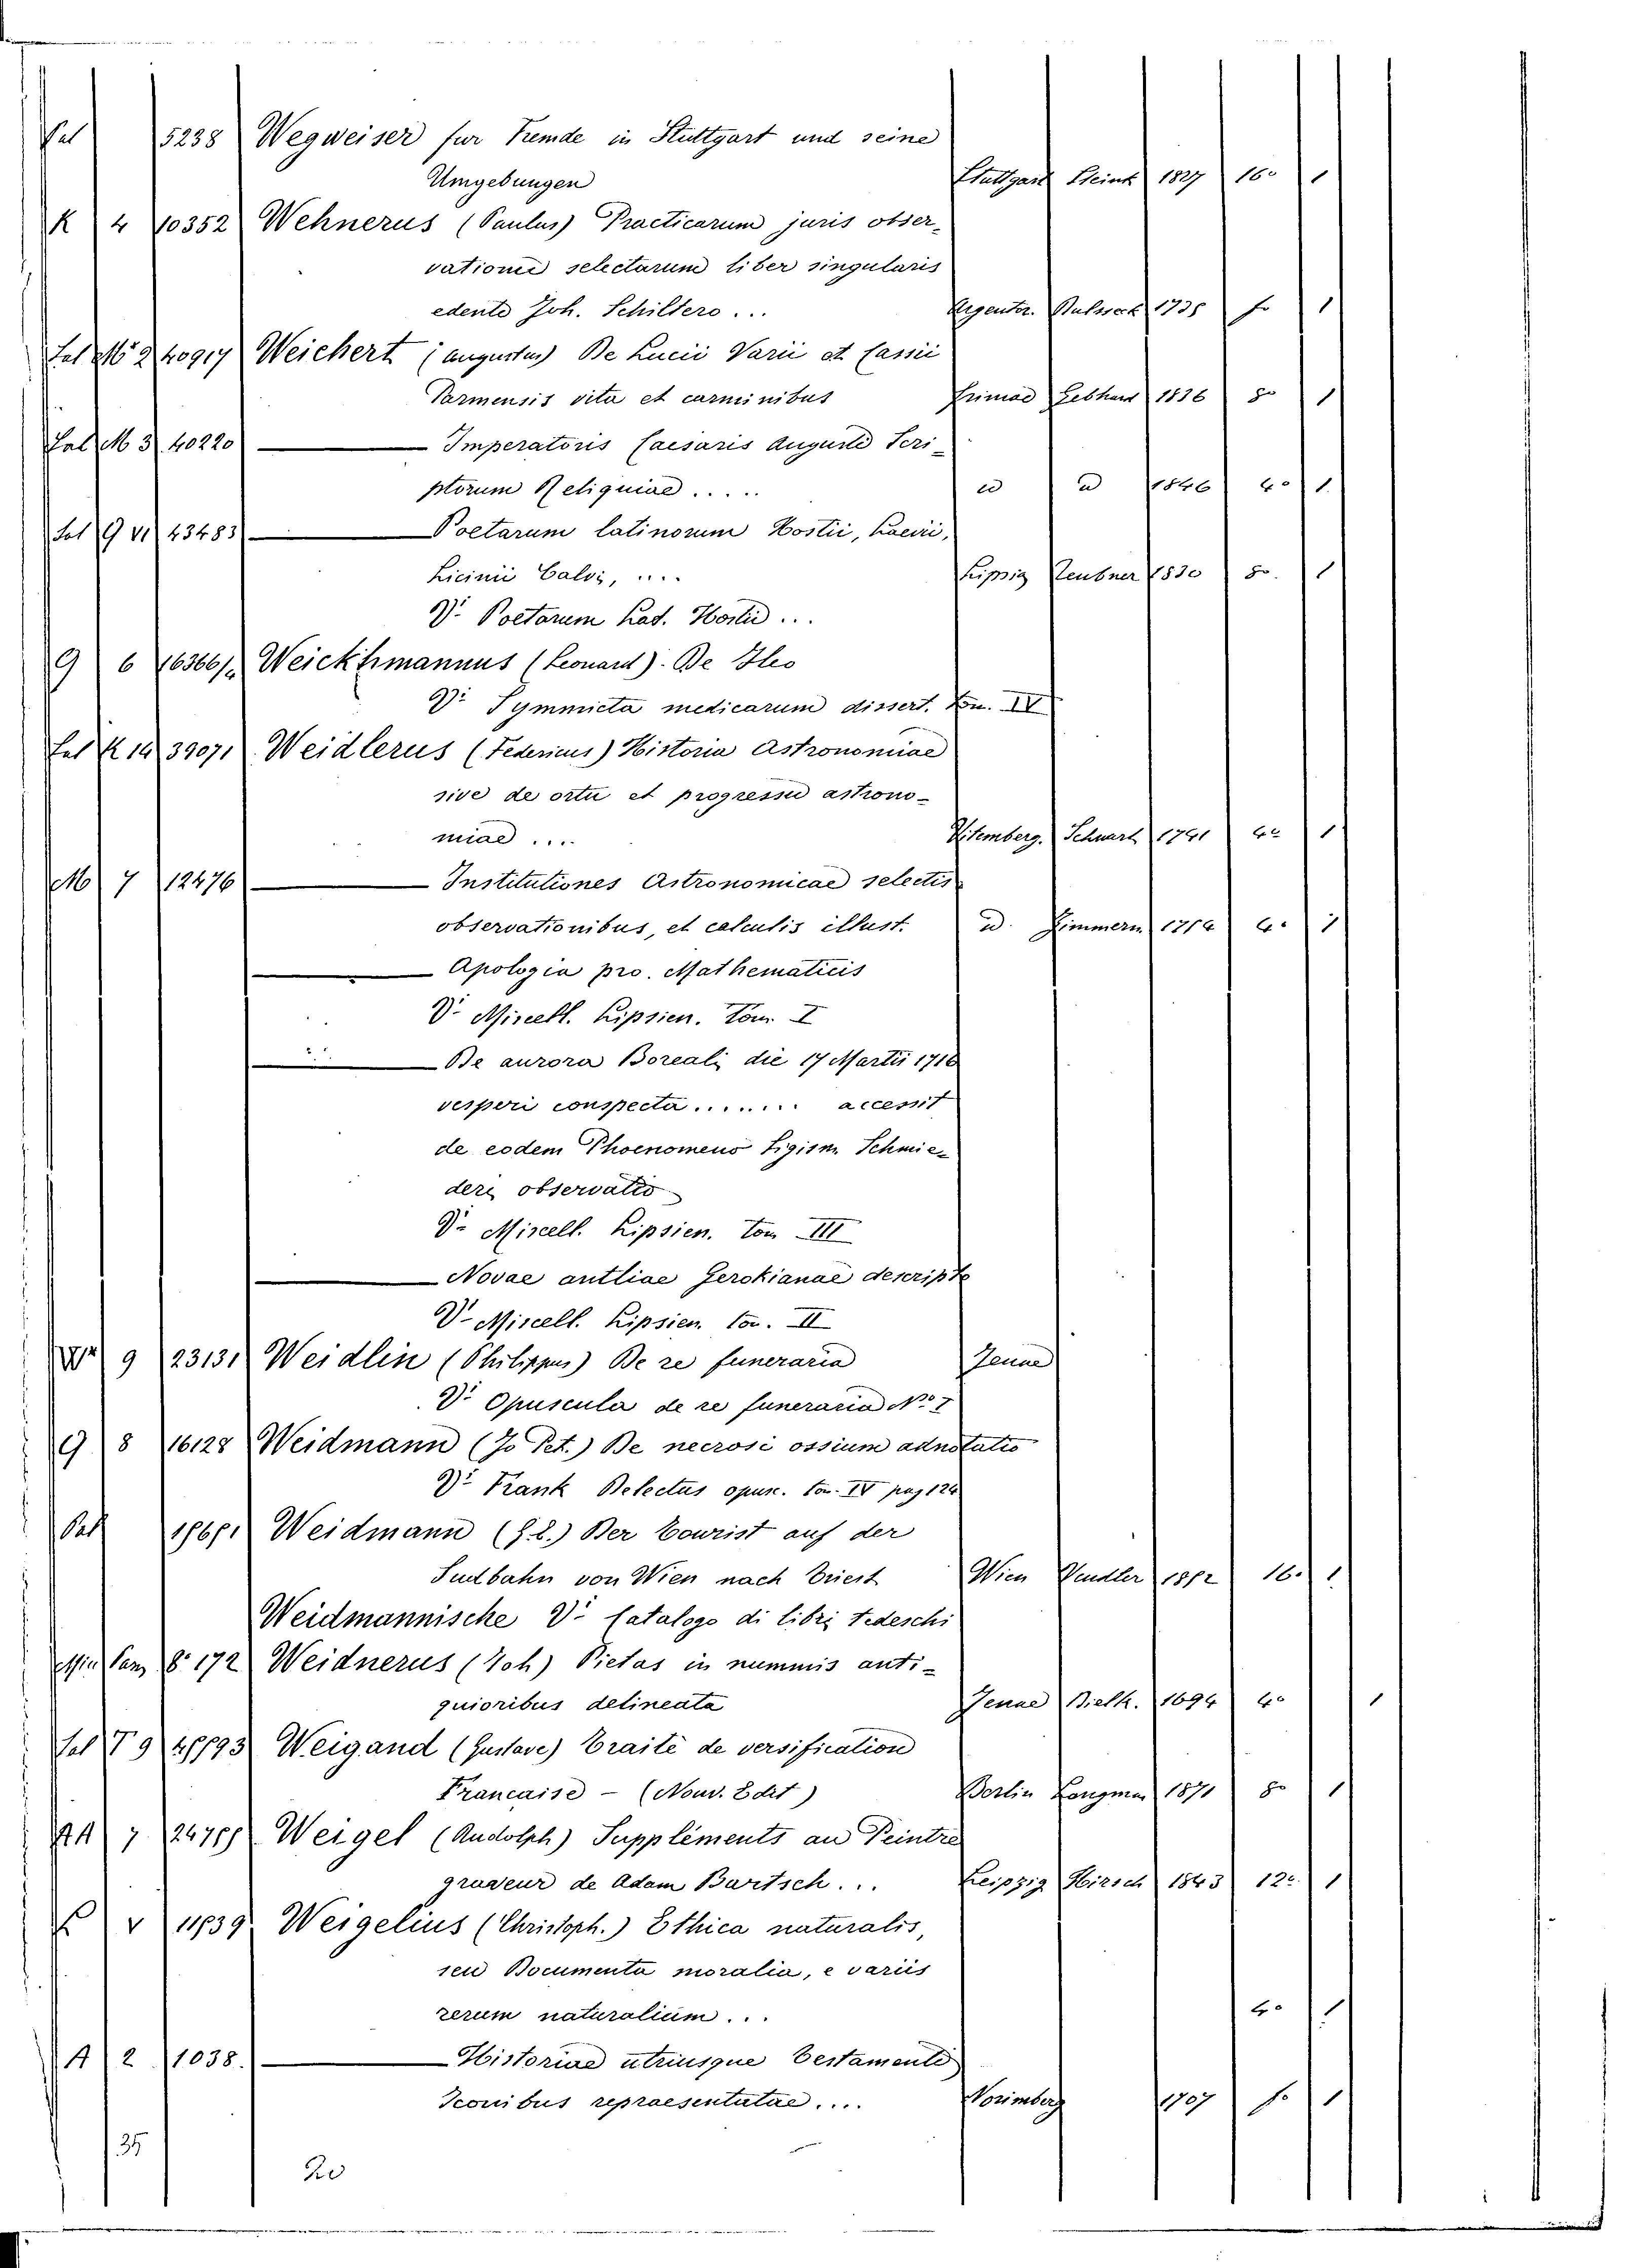 5238 Wegweiser fur Fremde in Stuttgart und seine
Umgebungen Stuttgart Steink 1827 16º 1
K 4 10352 Wehnerus (Paulus) Practicarum juris obser-
vationū selectarum liber singularis
edente Joh. Schiltero... Argentor. 1735 fº 1
Sal M 2 40917 Weichert (augustus) De Lucii Varii et Cassii
Parmensis vita et carminibus Grimae Gebhard 1836 8º 1
Sal M 3 40220 — Imperatoris Caesaris Augusti Scri-
ptorum Reliquiae..... id id 1846 4º 1
Sal G VI 43483 — Poetarum latinorum Hostii, Laevii,
Licinii Calvi, .... Lipsig Teubner 1830 8º. 1
Vi Poetarum Lat. Hostii...
G 6 16366/2 Weickhmannus (Leonard). De Ileo
Vi Symmicta medicarum dissert. tom. IV
Sal K 14 39071 Weidlerus (Federicus) Historia Astronomiae
sive de ortu et progressu astrono-
miae .... Vitemberg. Schwart 1741 4º 1
M 7 12476 — Institutiones Astronomicae selectis
observationibus, et calculis illust. id. Zimmern 1754 4º 1
— Apologia pro. Mathematicis
Vi Miscell. Lipsien. Tom. I
— De aurora Boreali die 17 Martii 1716
vesperi conspecta....... accessit
de eodem Phoenomeno Sigism. Schmie-
deri observatio
Vi Miscell. Lipsien. tom III
— Novae antliae Gerokianae descriptº
Vi Miscell. Lipsien. tom. II
9 23131 Weidlin (Philippus) De re funeraria Jenae
Vi Opuscula de re funeraria Nº 7
G 8 16128 Weidmann (Jo Pet.) De necrosi ossium adnotatio
Vi Frank Delectus opusc. tom. IV pag 124
Sal 15651 Weidmann (F.C.) Der Tourist auf der
Sudbahn von Wien nach Triest Wien Wendler 1852 16. 1
Weidmannische Vi Catalogo di libri tedeschi
Min Can 8º 172 Weidnerus (Joh) Pietas in nummis anti-
quioribus delineata Jenae Bielk. 1694 4º 1
Sal T 9 45593 Weigand (Gustave) Traité de versification
Francaise – (Nouv. Edit) Berlin Langman 1871 8º 1
AA 7 24755 Weigel (Rudolph) Suppléments au Peintre
graveur de Adam Bartsch... Leipzig Hirsch 1843 12º. 1
V 11539 Weigelius (Christoph.) Ethica naturalis,
seu Documenta moralia, e variis
rerum naturalium... 4º 1
A 2 1038. — Historiae utriusque Testamenti
Iconibus repraesentatae.... Norimberg 1707 fº 1
35